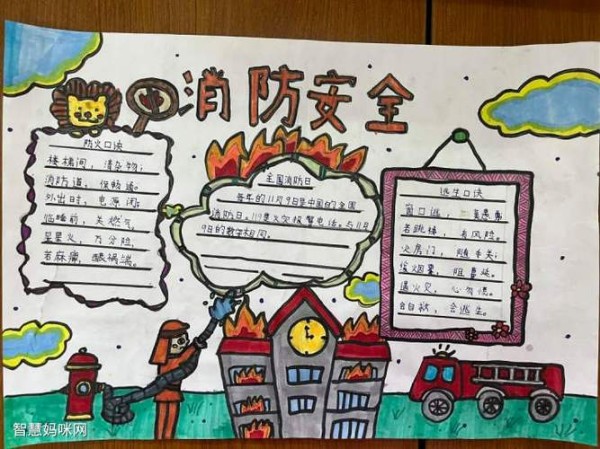 消防安全
防火口诀
楼梯间，清杂物；
消防道，保畅通。
外出时，电源闭；
临睡前，关燃气。
星星火，万分险，
若麻痹，酿祸端。
全国消防日
每年的11月9日是中国的全国
消防日。119是火灾报警电话。与11月
9日的数字相同。
逃生口诀
窗口逃，
若跳楼，有风险。
火房门，随手关；
火灾，心
会自救，会逃生。
智慧妈咪网